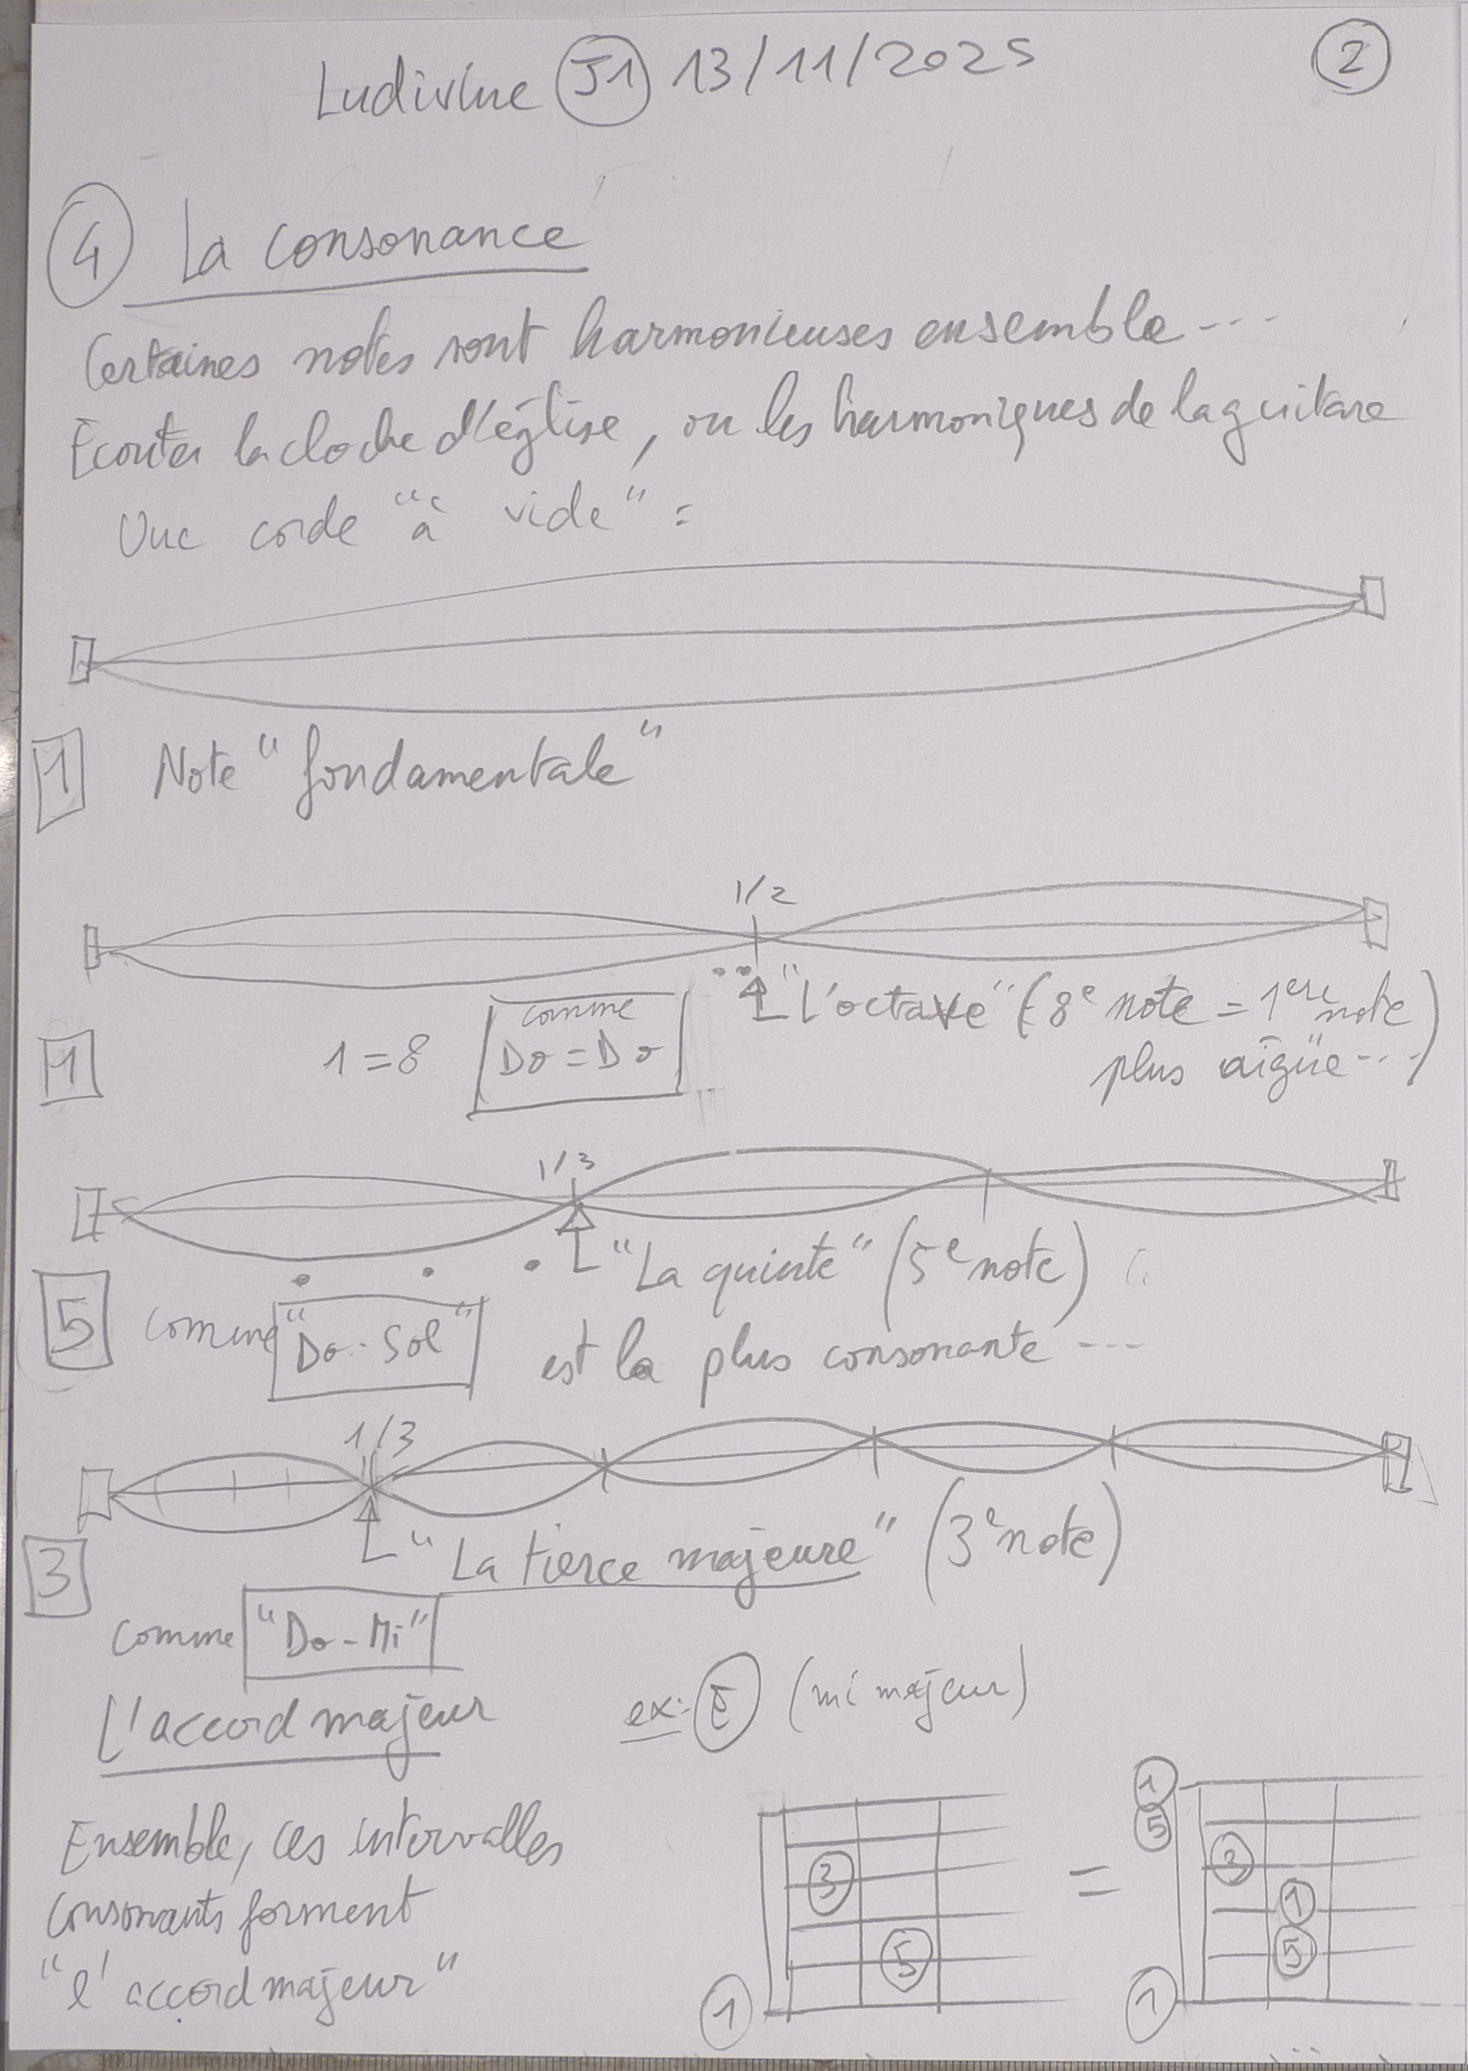 Ludivine J1 13/11/2025 2
4 La consonance
Certaines notes sont harmonieuses ensemble...
Ecouter la cloche d'église, ou les harmoniques de la guitare
Une corde "à vide" =
1 Note "fondamentale"
1/2
"L'octave" (8e note = 1ere note
plus aigüe...)
1 1=8 comme
Do=Do
1/3
"La quinte" (5e note)
5 comme "Do-Sol" est la plus consonante...
1/3
"La tierce majeure" (3e note)
3
comme "Do-Mi"
L'accord majeur ex: E (mi majeur)
Ensemble, ces intervalles
consonants forment
"l'accord majeur"
3
5
1
=
1
5
3
1
5
1